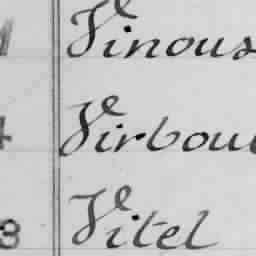 Vinous
4 Virbou
3 Vitel